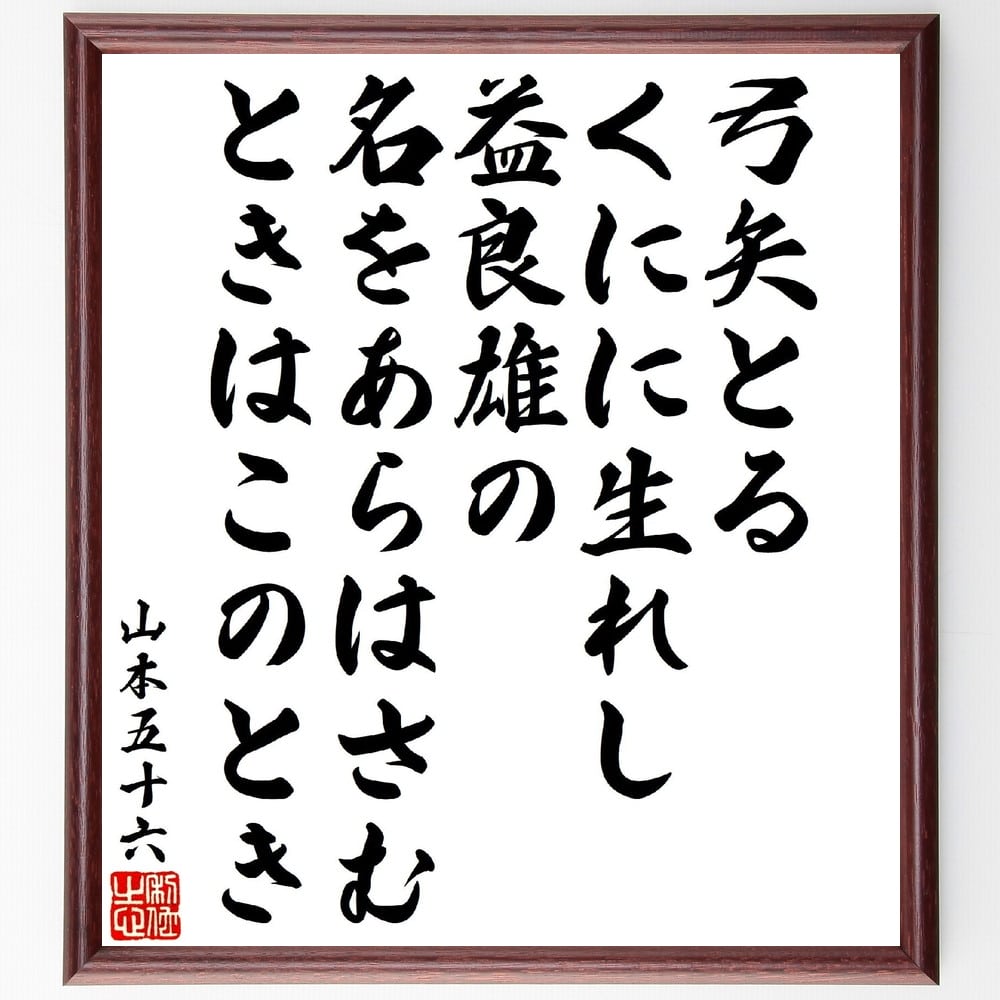 弓矢とる
くにに生れし
益良雄の
名をあらはさむ
ときはこのとき
山本五十六